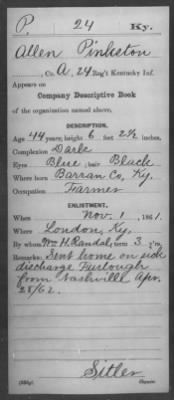 P. 24 Ky.
Allen Pinkston
, Co. A, 24 Reg't Kentucky Inf.
Appears on
Company Descriptive Book
of the organization named above.
DESCRIPTION.
Age 44 years; height 6 feet 2½ inches.
Complexion Dark
Eyes Blue; hair Black
Where born Barran Co, Ky.
Occupation Farmer
ENLISTMENT.
When Nov. 1, 1861.
Where London, Ky.
By whom Wm H. Randal; term 3 y'rs.
Remarks: Sent home on sick
discharge Furlough
from Nashville Apr.
28/62.
Sitler
Copyist.